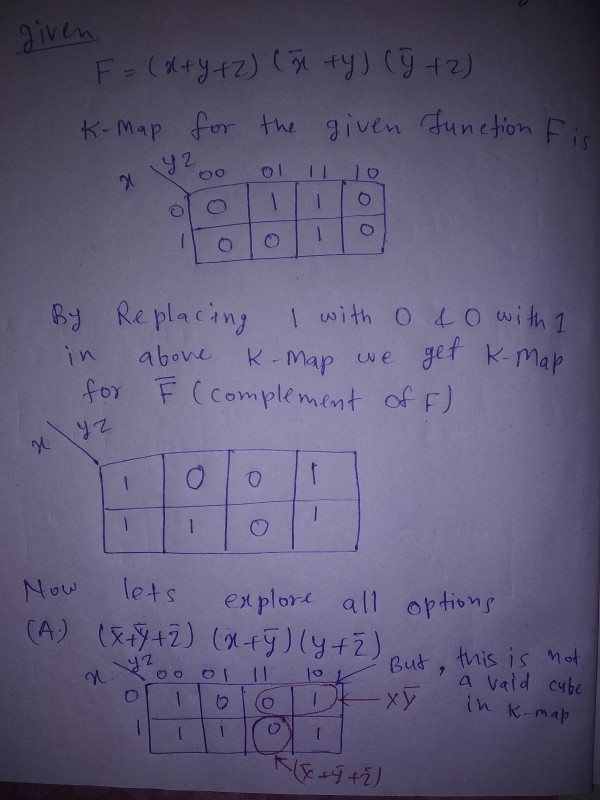 given
F = (x+y+z) (x̄ +y) (ȳ +z)
K-Map for the given function F is
x yz 00 01 11 10
0 0 1 1 0
1 0 0 1 0
By Replacing 1 with 0 & 0 with 1
in above K-Map we get K-Map
for F̄ (complement of F)
x yz
1 0 0 1
1 1 0 1
Now lets explore all options
(A.) (x̄+ȳ+z̄) (x+ȳ) (y+z̄)
x yz 00 01 11 10
0 1 0 0 1
1 1 1 0 1
But, this is not
a vaid cube
in K-map
xȳ
(x̄+ȳ+z̄)